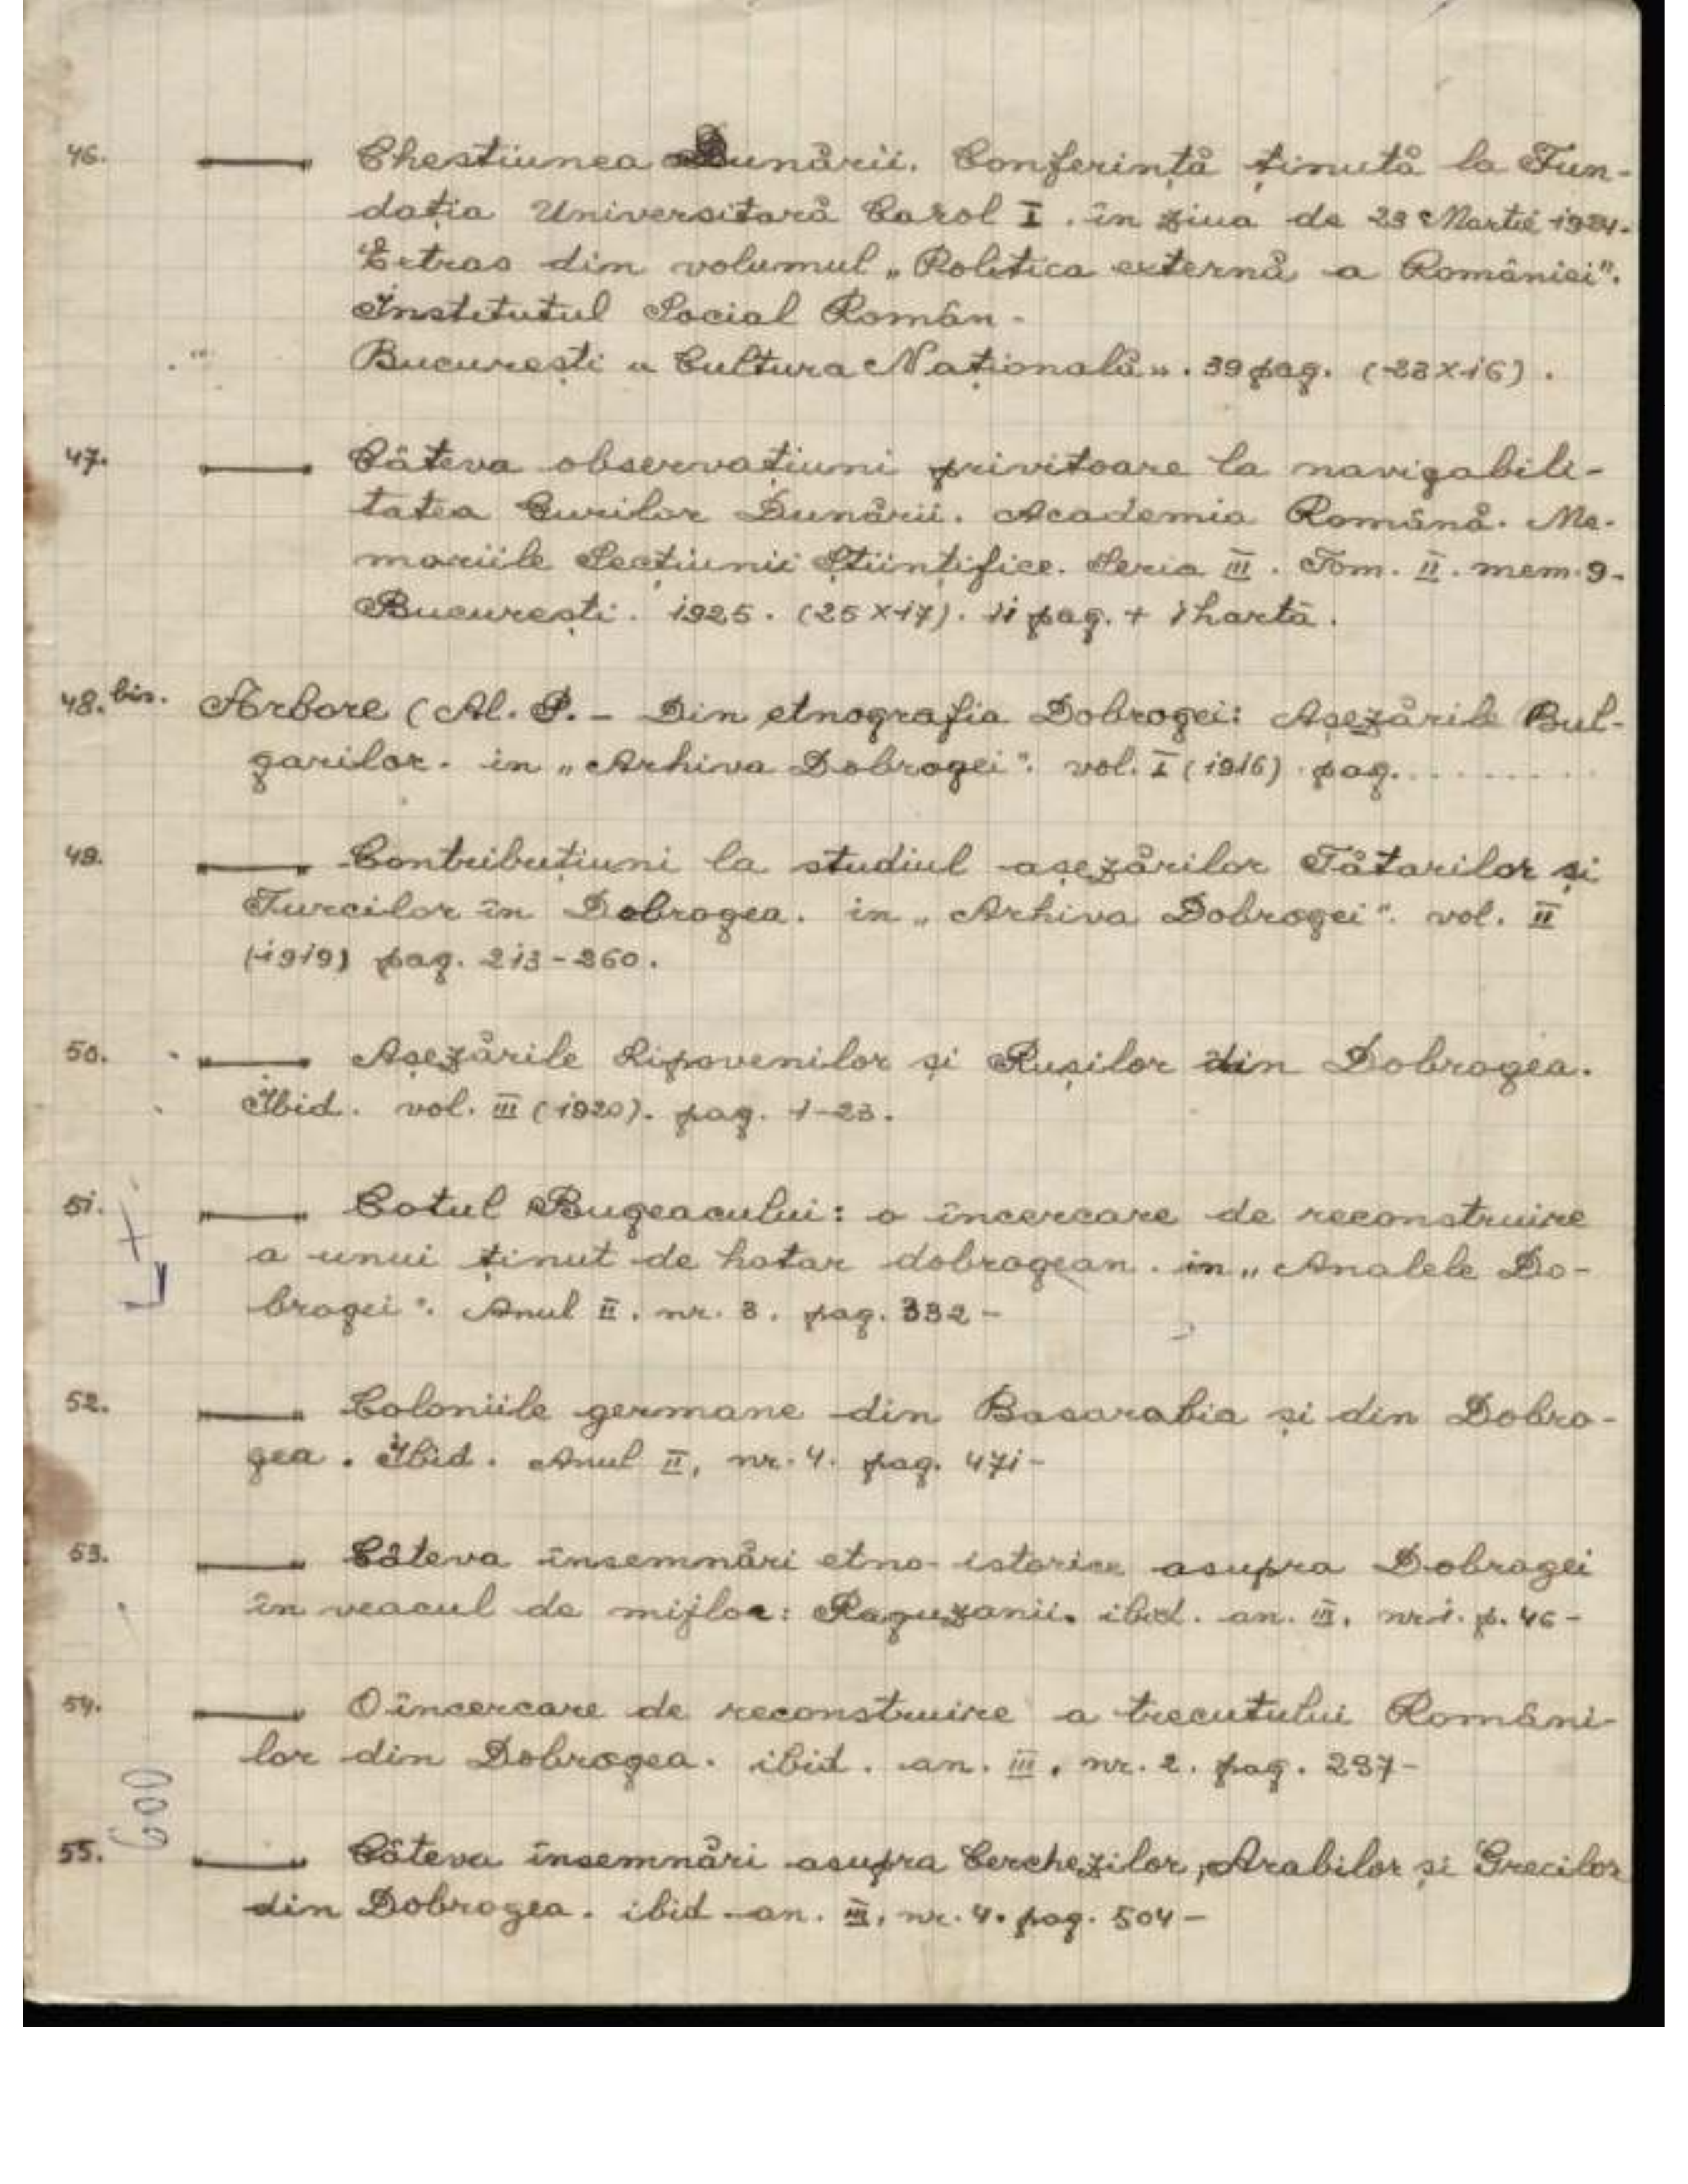 46. — Chestiunea Dunării. Conferință ținută la Fun-
dația Universitară Carol I. în ziua de 23 Martie 1924.
Extras din volumul „Politica externă a României".
Institutul Social Român.
București « Cultura Națională». 39 pag. (23 x 16).
47. — Câteva observațiuni privitoare la navigabili-
tatea Gurilor Dunării. Academia Română. Me-
moriile Secțiunii Științifice. Seria III. Tom. II. mem. 9.
București. 1925. (25 x 17). 11 pag. + 1 hartă.
48. bis. Arbore (Al. P. - Din etnografia Dobrogei: Așezările Bul-
garilor. in „Arhiva Dobrogei". vol. I (1916) pag. ..........
49. — Contribuțiuni la studiul așezărilor Tătarilor și
Turcilor în Dobrogea. in „Arhiva Dobrogei". vol. II
(1919) pag. 213-260.
50. — Așezările Lipovenilor și Rușilor din Dobrogea.
Ibid. vol. III (1920). pag. 1-23.
51. — Cotul Bugeacului: o încercare de reconstruire
a unui ținut de hotar dobrogean. in „Analele Do-
brogei". Anul II. nr. 3. pag. 332-
52. — Coloniile germane din Basarabia și din Dobro-
gea. Ibid. Anul II, nr. 4. pag. 471-
53. — Câteva însemnări etno-istorice asupra Dobrogei
în veacul de mijloc: Raguzanii. ibid. an. III. nr 1. p. 46-
54. — O încercare de reconstruire a trecutului Români-
lor din Dobrogea. ibid. an. III. nr. 2. pag. 237-
600
55. — Câteva însemnări asupra Cerchezilor, Arabilor și Grecilor
din Dobrogea. ibid. an. III, nr. 4. pag. 504-